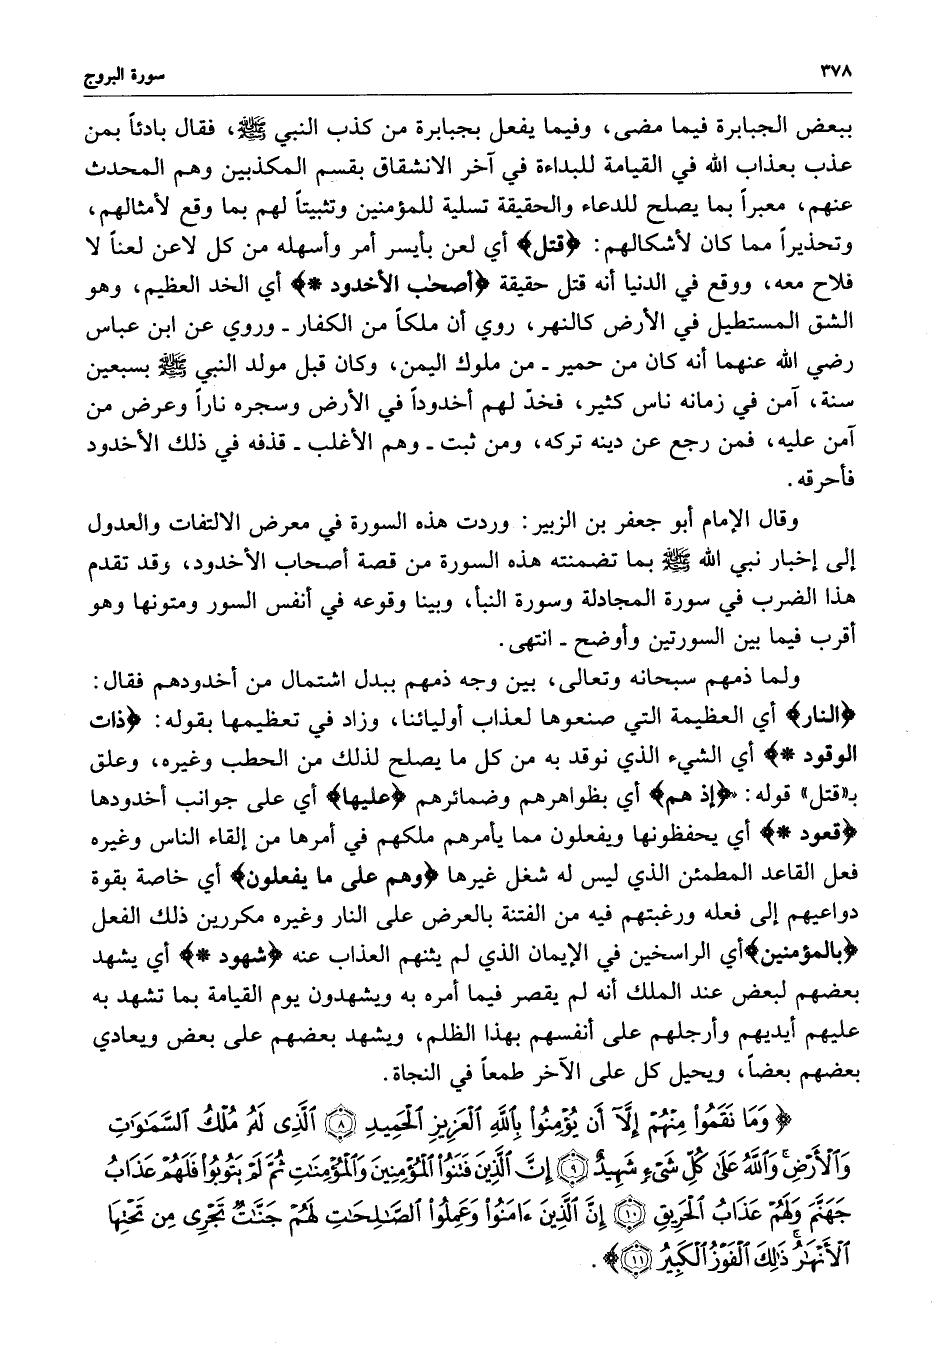 ٣٧٨ سورة البروج
ببعض الجبابرة فيما مضى، وفيما يفعل بجبابرة من كذب النبي ﷺ، فقال بادئاً بمن
عذب بعذاب الله في القيامة للبداءة في آخر الانشقاق بقسم المكذبين وهم المحدث
عنهم، معبراً بما يصلح للدعاء والحقيقة تسلية للمؤمنين وتثبيتاً لهم بما وقع لأمثالهم،
وتحذيراً مما كان لأشكالهم: ﴿قتل﴾ أي لعن بأيسر أمر وأسهله من كل لاعن لعناً لا
فلاح معه، ووقع في الدنيا أنه قتل حقيقة ﴿أصحٰب الأخدود *﴾ أي الخد العظيم، وهو
الشق المستطيل في الأرض كالنهر، روي أن ملكاً من الكفار ـ وروي عن ابن عباس
رضي الله عنهما أنه كان من حمير ـ من ملوك اليمن، وكان قبل مولد النبي ﷺ بسبعين
سنة، آمن في زمانه ناس كثير، فخدّ لهم أخدوداً في الأرض وسجره ناراً وعرض من
آمن عليه، فمن رجع عن دينه تركه، ومن ثبت ـ وهم الأغلب ـ قذفه في ذلك الأخدود
فأحرقه.
وقال الإمام أبو جعفر بن الزبير: وردت هذه السورة في معرض الالتفات والعدول
إلى إخبار نبي الله ﷺ بما تضمنته هذه السورة من قصة أصحاب الأخدود، وقد تقدم
هذا الضرب في سورة المجادلة وسورة النبأ، وبينا وقوعه في أنفس السور ومتونها وهو
أقرب فيما بين السورتين وأوضح ـ انتهى.
ولما ذمهم سبحانه وتعالى، بين وجه ذمهم ببدل اشتمال من أخدودهم فقال:
﴿النار﴾ أي العظيمة التي صنعوها لعذاب أوليائنا، وزاد في تعظيمها بقوله: ﴿ذات
الوقود *﴾ أي الشيء الذي نوقد به من كل ما يصلح لذلك من الحطب وغيره، وعلق
بـ«قتل» قوله: ﴿إذ هم﴾ أي بظواهرهم وضمائرهم ﴿عليها﴾ أي على جوانب أخدودها
﴿قعود *﴾ أي يحفظونها ويفعلون مما يأمرهم ملكهم في أمرها من إلقاء الناس وغيره
فعل القاعد المطمئن الذي ليس له شغل غيرها ﴿وهم على ما يفعلون﴾ أي خاصة بقوة
دواعيهم إلى فعله ورغبتهم فيه من الفتنة بالعرض على النار وغيره مكررين ذلك الفعل
﴿بالمؤمنين﴾أي الراسخين في الإيمان الذي لم يثنهم العذاب عنه ﴿شهود *﴾ أي يشهد
بعضهم لبعض عند الملك أنه لم يقصر فيما أمره به ويشهدون يوم القيامة بما تشهد به
عليهم أيديهم وأرجلهم على أنفسهم بهذا الظلم، ويشهد بعضهم على بعض ويعادي
بعضهم بعضاً، ويحيل كل على الآخر طمعاً في النجاة.
﴿ وَمَا نَقَمُوا۟ مِنْهُمْ إِلَّآ أَن يُؤْمِنُوا۟ بِٱللَّهِ ٱلْعَزِيزِ ٱلْحَمِيدِ ۝٨ ٱلَّذِى لَهُۥ مُلْكُ ٱلسَّمَـٰوَٰتِ
وَٱلْأَرْضِ ۚ وَٱللَّهُ عَلَىٰ كُلِّ شَىْءٍ شَهِيدٌ ۝٩ إِنَّ ٱلَّذِينَ فَتَنُوا۟ ٱلْمُؤْمِنِينَ وَٱلْمُؤْمِنَـٰتِ ثُمَّ لَمْ يَتُوبُوا۟ فَلَهُمْ عَذَابُ
جَهَنَّمَ وَلَهُمْ عَذَابُ ٱلْحَرِيقِ ۝١٠ إِنَّ ٱلَّذِينَ ءَامَنُوا۟ وَعَمِلُوا۟ ٱلصَّـٰلِحَـٰتِ لَهُمْ جَنَّـٰتٌ تَجْرِى مِن تَحْتِهَا
ٱلْأَنْهَـٰرُ ۚ ذَٰلِكَ ٱلْفَوْزُ ٱلْكَبِيرُ ۝١١﴾.